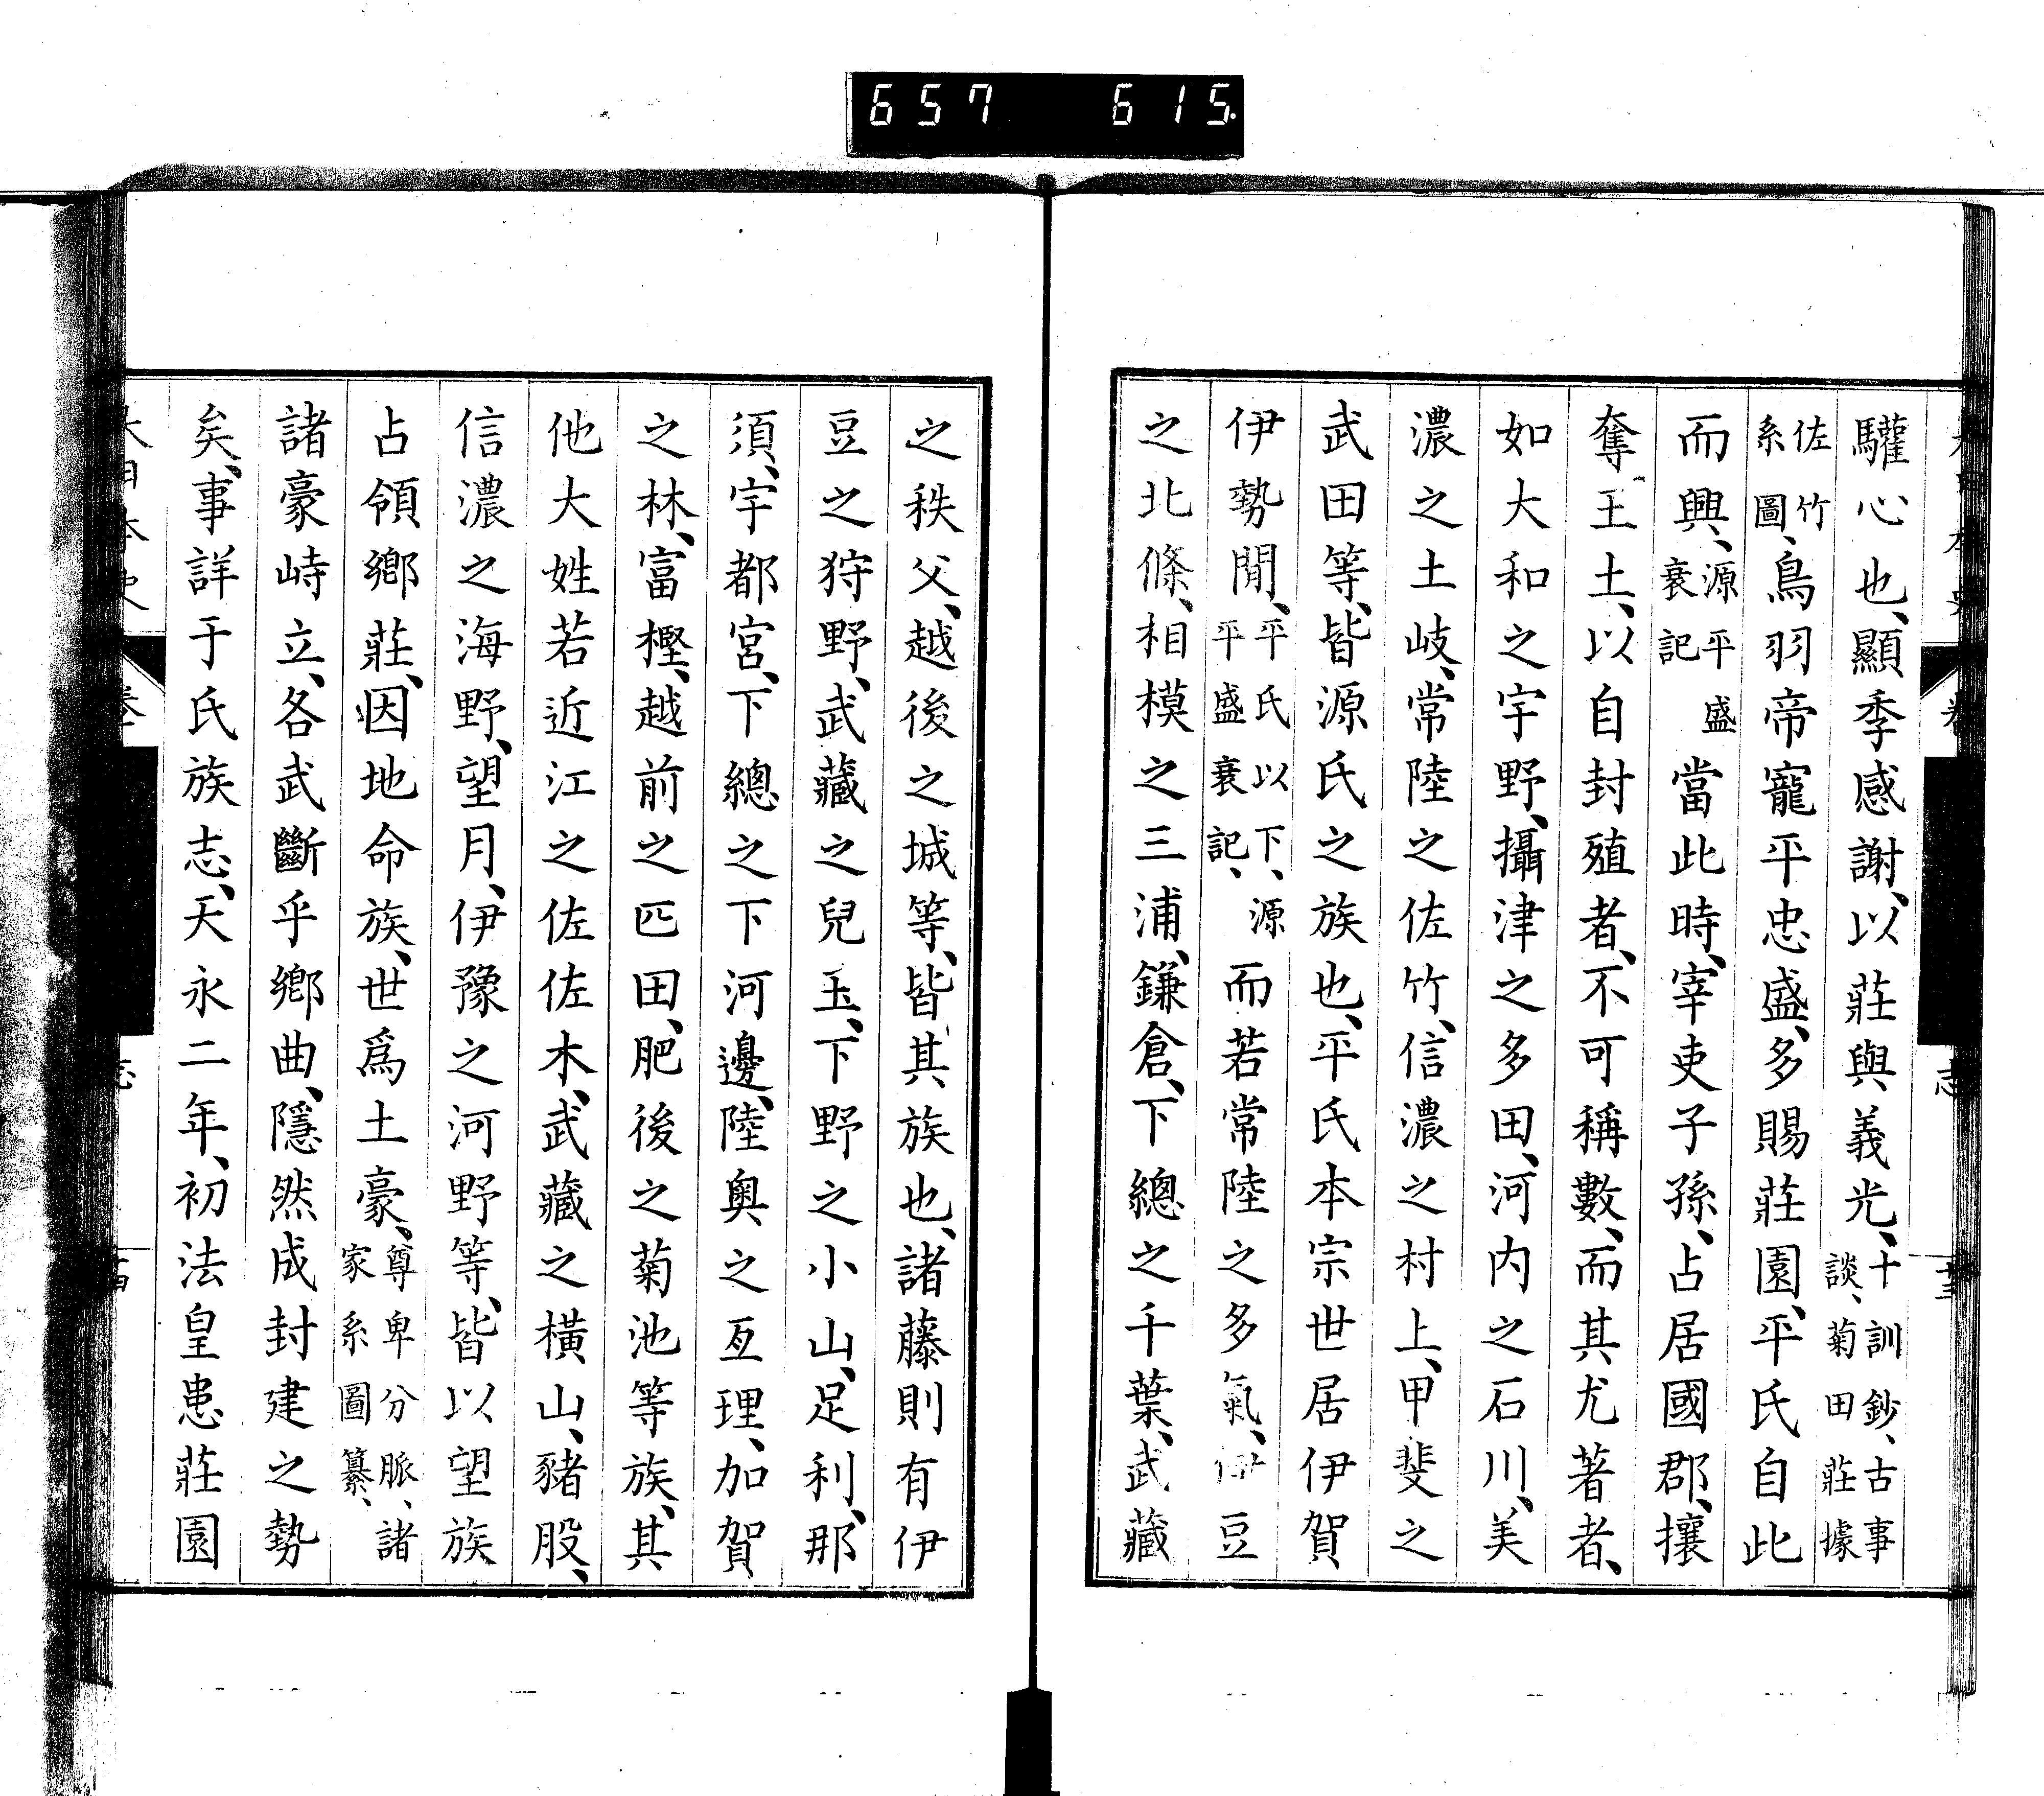 657 615
驩心也、顯季感謝、以莊與義光、十訓鈔、古事談、菊田莊據
佐竹系圖、鳥羽帝寵平忠盛、多賜莊園、平氏自此
而興、源平盛衰記當此時、宰吏子孫、占居國郡、攘
奪王土、以自封殖者、不可稱數、而其尤著者、
如大和之宇野、攝津之多田、河内之石川、美
濃之土岐、常陸之佐竹、信濃之村上、甲斐之
武田等、皆源氏之族也、平氏本宗世居伊賀
伊勢閒、平氏以下、源平盛衰記、而若常陸之多氣、伊豆
之北條、相模之三浦、鎌倉、下總之千葉、武藏
之秩父、越後之城等、皆其族也、諸藤則有伊
豆之狩野、武藏之兒玉、下野之小山、足利、那
須、宇都宮、下總之下河邊、陸奧之亙理、加賀
之林、富樫、越前之匹田、肥後之菊池等族、其
他大姓若近江之佐佐木、武藏之橫山、豬股、
信濃之海野、望月、伊豫之河野等、皆以望族
占領鄉莊、因地命族、世爲土豪、尊卑分脈、諸家系圖纂、
諸豪峙立、各武斷乎鄉曲、隱然成封建之勢
矣、事詳于氏族志、天永二年、初法皇患莊園